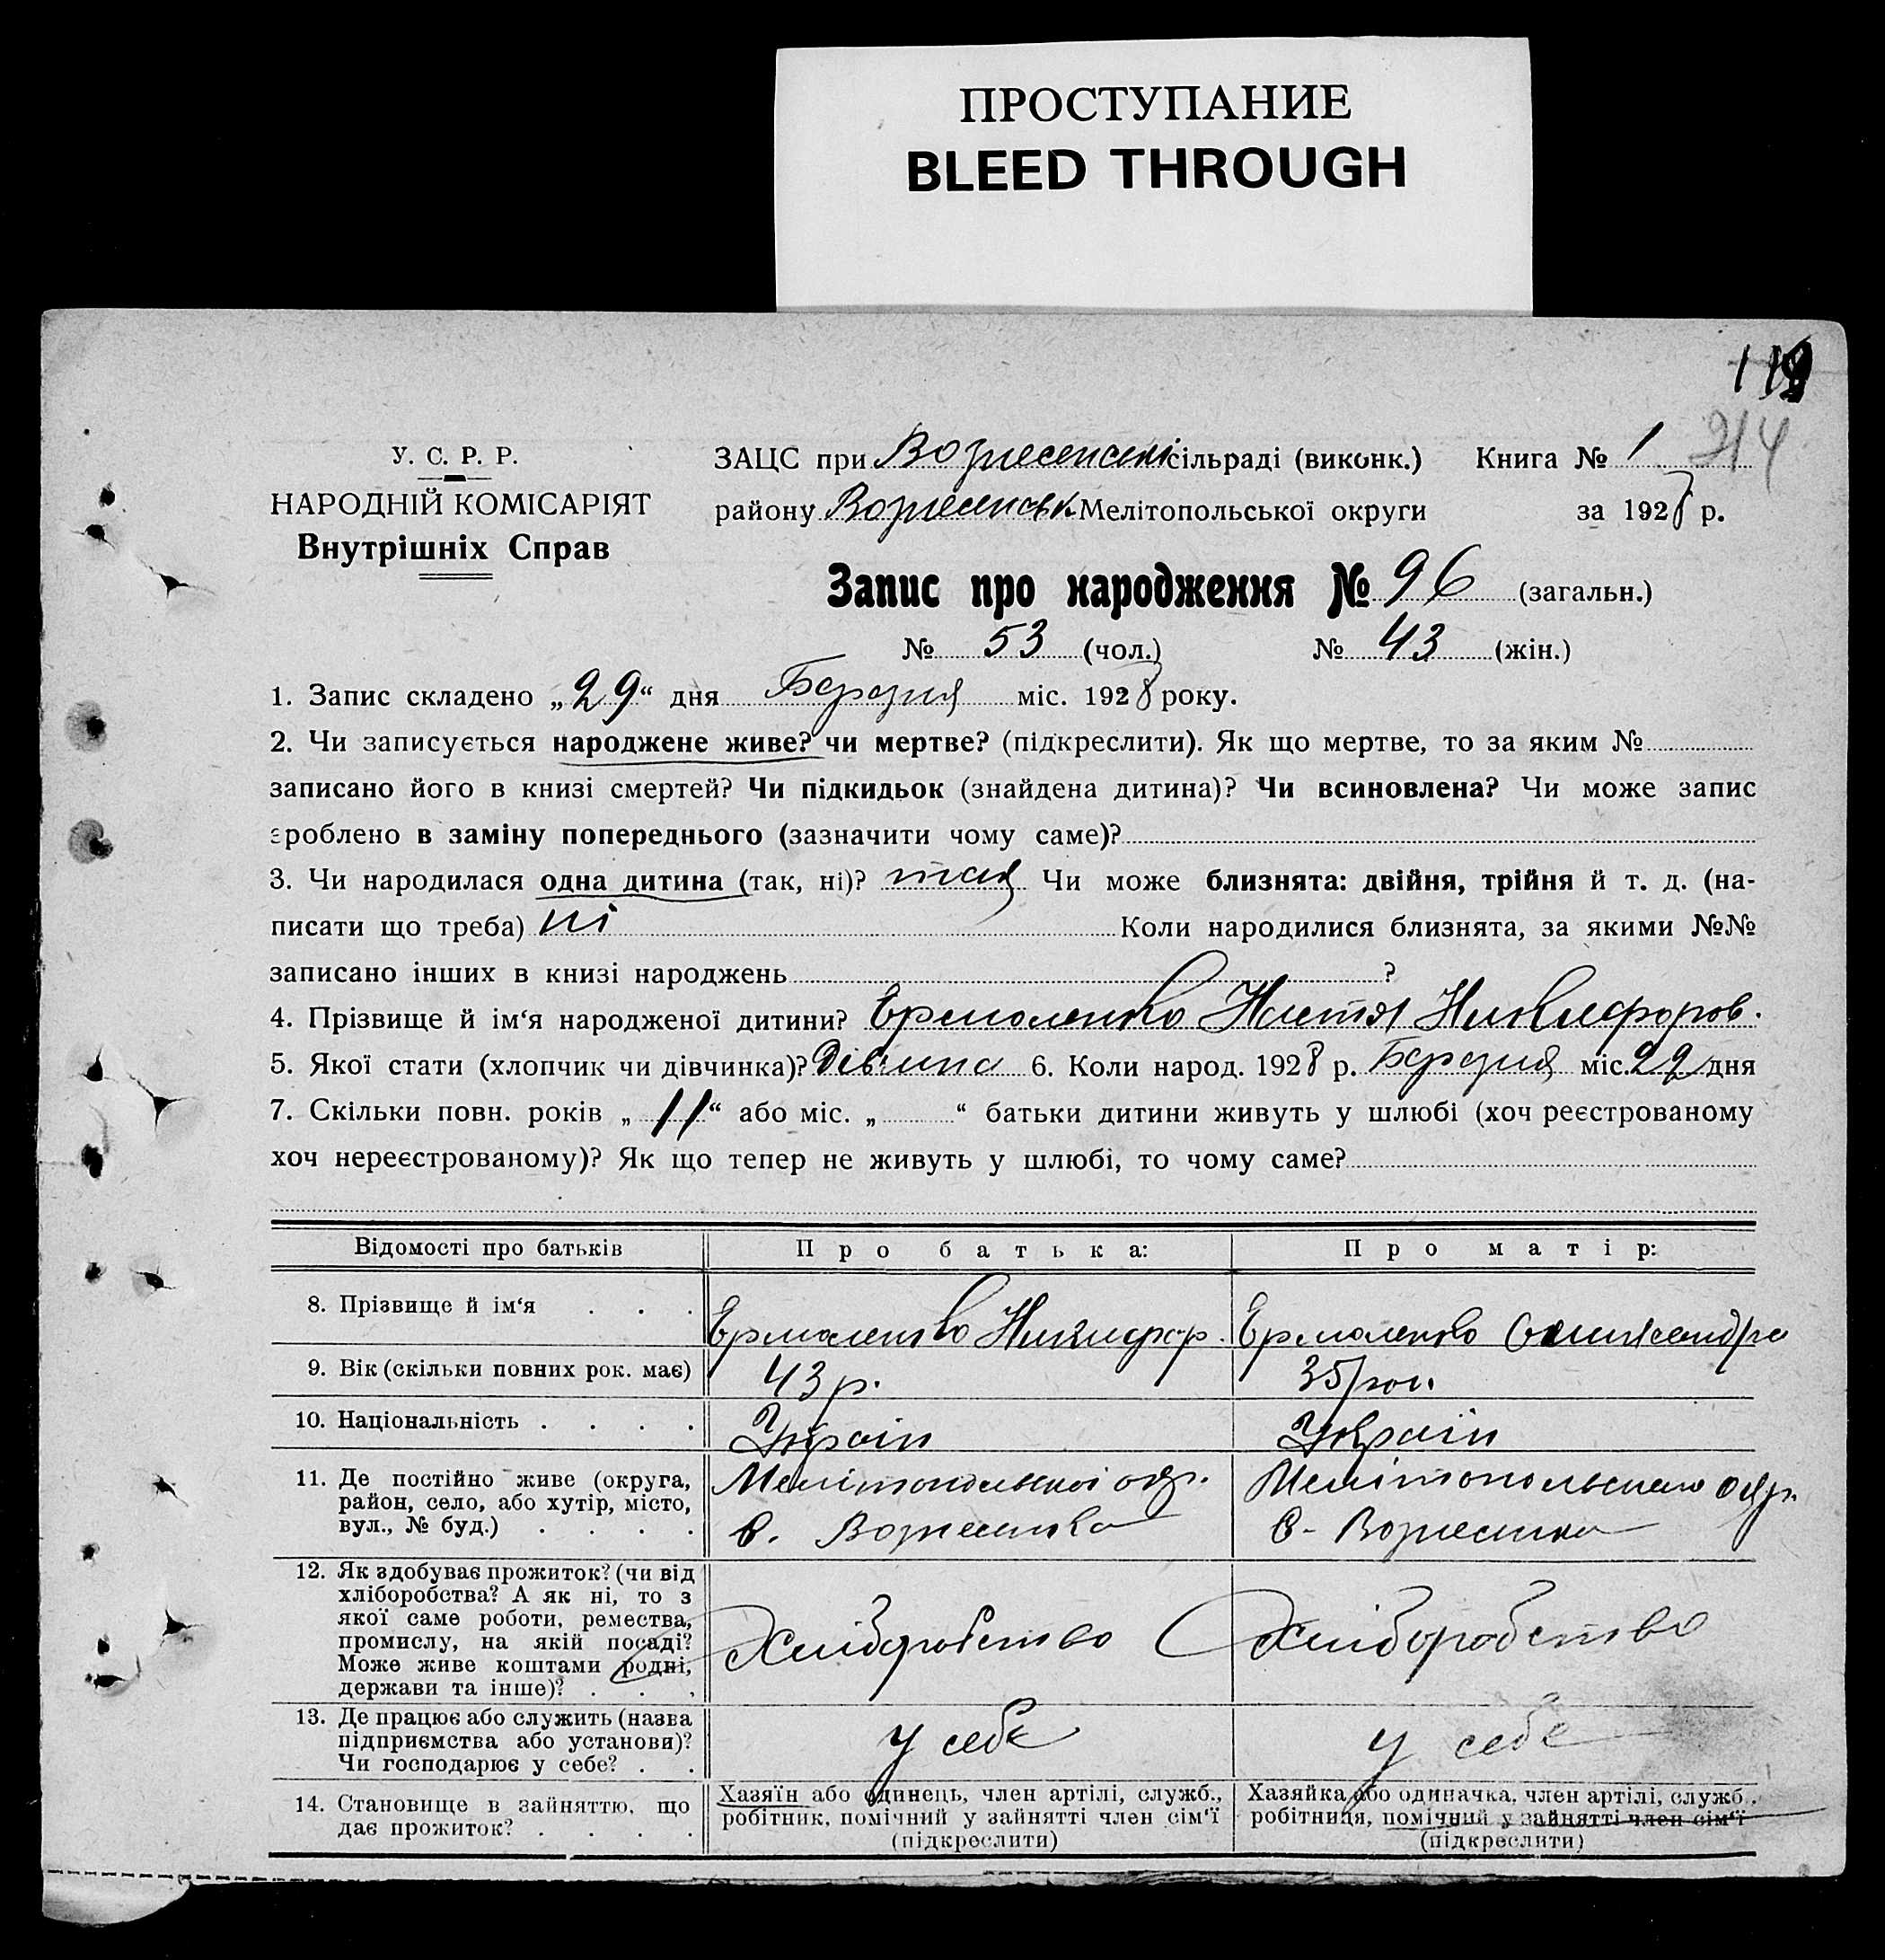 ПРОСТУПАНИЕ
BLEED THROUGH
119
214
У. С. Р. Р.
НАРОДНІЙ КОМІСАРІЯТ
Внутрішніх Справ
ЗАЦС при Вознесенськ сільраді (виконк.) Книга № 1
району Вознесенськ Мелітопольської округи за 1928 р.
Запис про народження № 96 (загальн.)
№ 53 (чол.) № 43 (жін.)
1. Запис складено „29“ дня Березня міс. 1928 року.
2. Чи записується народжене живе? чи мертве? (підкреслити). Як що мертве, то за яким №
записано його в книзі смертей? Чи підкидьок (знайдена дитина)? Чи всиновлена? Чи може запис
зроблено в заміну попереднього (зазначити чому саме)?
3. Чи народилася одна дитина (так, ні)? так Чи може близнята: двійня, трійня й т. д. (на-
писати що треба) ні Коли народилися близнята, за якими №№
записано інших в книзі народжень ?
4. Прізвище й ім‘я народженої дитини? Ермоленко Настя Никифоров.
5. Якої стати (хлопчик чи дівчинка)? Дівчина 6. Коли народ. 1928 р. Березня міс. 22 дня
7. Скільки повн. років „11“ або міс. „ “ батьки дитини живуть у шлюбі (хоч реєстрованому
хоч нереєстрованому)? Як що тепер не живуть у шлюбі, то чому саме?
Відомості про батьків Про батька: Про матір:
8. Прізвище й ім‘я . . . Ермоленко Никифор. Ермоленко
9. Вік (скільки повних рок. має) 43 р. 35 рок.
10. Національність . . . . Україн Україн
11. Де постійно живе (округа,
район, село, або хутір, місто,
вул., № буд.) . . . .
Мелітопольської окр.
с. Вознесенка
Мелітопольської окр.
с. Вознесенка
12. Як здобуває прожиток? (чи від
хліборобства? А як ні, то з
якої саме роботи, ремества,
промислу, на якій посаді?
Може живе коштами родні,
держави та інше)? . . .
Хліборобство Хліборобство
13. Де працює або служить (назва
підприємства або установи)?
Чи господарює у себе? . .
у себе у себе
14. Становище в зайняттю, що
дає прожиток? . . . .
Хазяїн або одинець, член артілі, служб.,
робітник, помічний у зайнятті член сім‘ї
(підкреслити)
Хазяйка або одиначка, член артілі, служб.,
робітниця, помічний у зайнятті член сім‘ї
(підкреслити)